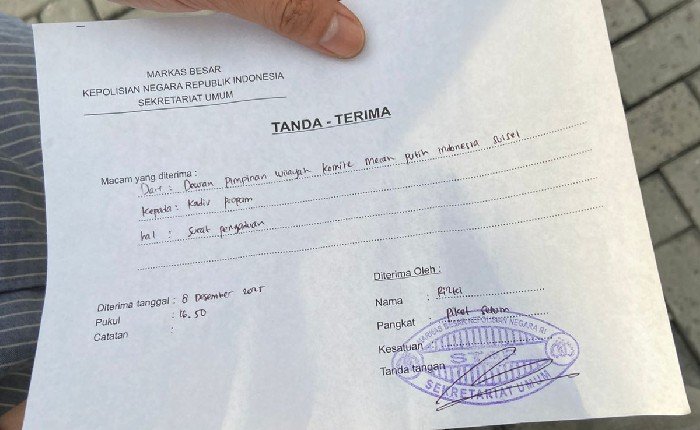 MARKAS BESAR
KEPOLISIAN NEGARA REPUBLIK INDONESIA
SEKRETARIAT UMUM
TANDA - TERIMA
Macam yang diterima :
Dari : Dewan Pimpinan wilayah Komite Merah putih Indonesia Sulsel
Kepada : Kadiv propam
hal : Surat pengaduan
Diterima tanggal : 8 Desember 2025
Pukul : 16.50
Catatan :
Diterima Oleh :
Nama : Rizki
Pangkat : piket Setum
Kesatuan
Tanda tangan
MARKAS BESAR KEPOLISIAN NEGARA RI
SEKRETARIAT UMUM